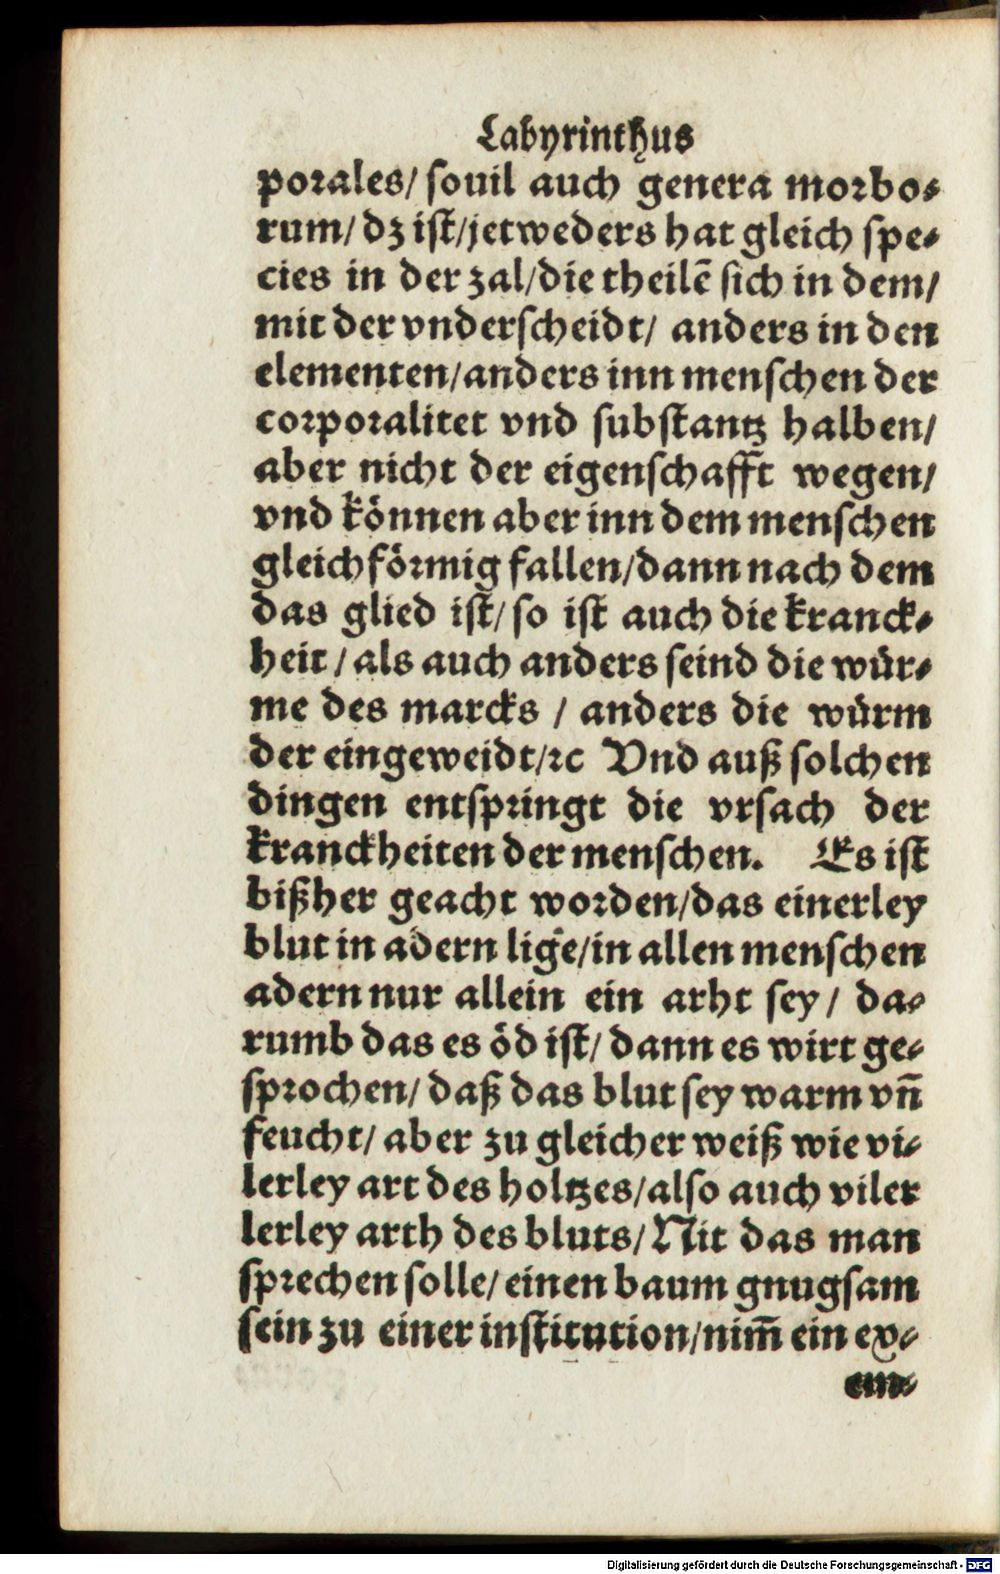 Labyrinthus
porales/ souil auch genera morbo⸗
rum/ dz ist/jetweders hat gleich spe⸗
cies in der zal/die theilē sich in dem/
mit der vnderscheidt/ anders in den
elementen/anders inn menschen der
corporalitet vnd substantz halben/
aber nicht der eigenschafft wegen/
vnd können aber inn dem menschen
gleichförmig fallen/dann nach dem
das glied ist/ so ist auch die kranck⸗
heit / als auch anders seind die wür⸗
me des marcks / anders die würm
der eingeweidt/ꝛc Vnd auß solchen
dingen entspringt die vrsach der
kranckheiten der menschen. Es ist
bißher geacht worden/das einerley
blut in adern lige/in allen menschen
adern nur allein ein arht sey/ da⸗
rumb das es öd ist/ dann es wirt ge⸗
sprochen/ daß das blut sey warm vn̄
feucht/ aber zu gleicher weiß wie vi⸗
lerley art des holtzes/also auch viler
lerley arth des bluts/ Nit das man
sprechen solle/ einen baum gnugsam
sein zu einer institution/nim̄ ein ex⸗
em⸗
Digitalisierung gefördert durch die Deutsche Forschungsgemeinschaft - DFG